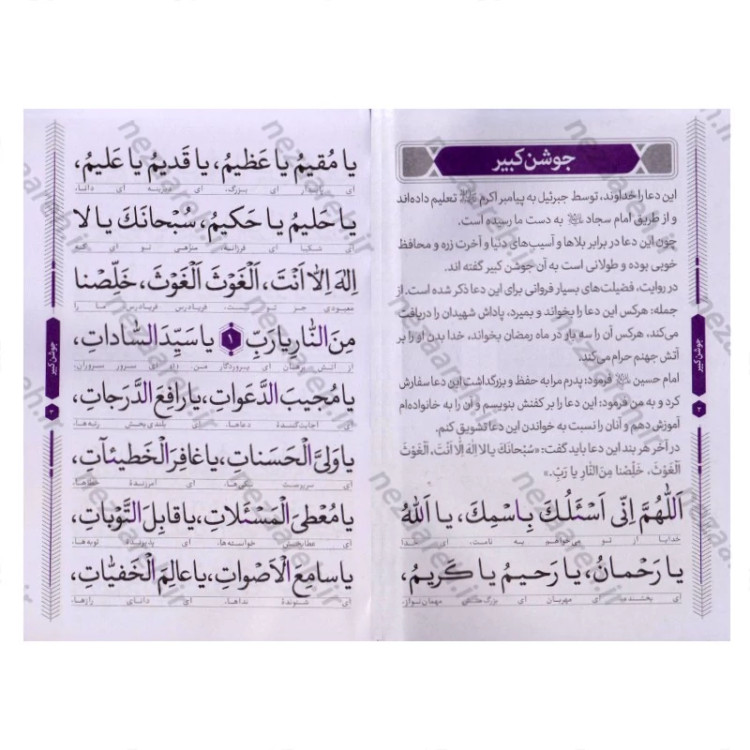 جوشن کبیر
این دعا را خداوند، توسط جبرئیل به پیامبر اکرم ﷺ تعلیم داده‌اند
و از طریق امام سجاد به دست ما رسده است.
چون این دعا در برابر بلاها و آسیب‌های دنیا و آخرت زره و محافظ
خوبی بوده و طولانی است به آن جوشن کبیر گفته اند.
در روایت، فضیلت‌های بسیار فروانی برای این دعا ذکر شده است. از
جمله: هرکس این دعا را بخواند و بمیرد، پاداش شهیدان را دریافت
می‌کند، هرکس آن را سه بار در ماه رمضان بخواند، خدا بدن او را بر
آتش جهنم حرام می‌کند.
امام حسین فرمود: پدرم مرا به حفظ و بزرگداشت این دعا سفارش
کرد و به من فرمود: این دعا را بر کفنش بنویسم و آن را به خانواده‌ام
آموزش دهم و آنان را نسبت به خواندن این دعا تشویق کنم.
در آخر هر بند این دعا باید گفت: «سُبْحانَكَ يا لا اِلهَ اِلّا اَنْتَ، اَلْغَوْثَ
اَلْغَوْثَ، خَلِّصْنا مِنَ النَّارِ يا رَبِّ.»
اَللّٰهُمَّ اِنّى اَسْئَلُكَ بِاسْمِكَ، يا اَللّٰهُ
خدایا از تو می‌خواهم به نامت، ای خدا
يا رَحْمانُ، يا رَحيمُ يا كَريمُ،
ای بخشنده ای مهربان ای بزرگ‌منش مهمان‌نواز،
جوشن کبیر
يا مُقيمُ يا عَظيمُ، يا قَديمُ يا عَليمُ،
ای پایدار ای بزرگ، ای دیرینه ای دانا،
يا حَليمُ يا حَكيمُ، سُبْحانَكَ يا لا
ای شکیبا ای فرزانه، منزهی تو ای که
اِلهَ اِلّا اَنْتَ، اَلْغَوْثَ اَلْغَوْثَ، خَلِّصْنا
معبودی جز تو نیست، فریادرس فریادرس ما را
مِنَ النَّارِ يا رَبِّ ۱ يا سَيِّدَ السَّاداتِ،
از آتش برهان ای پروردگار من. ای سرور سروران،
يا مُجيبَ الدَّعَواتِ، يا رافِعَ الدَّرَجاتِ،
ای اجابت‌کنندهٔ دعاها، ای بلندی‌بخش رتبه‌ها،
يا وَلِىَّ الْحَسَناتِ، يا غافِرَ الْخَطيئاتِ،
ای سرپرست نیکی‌ها، ای آمرزندهٔ خطاها،
يا مُعْطِىَ الْمَسْئَلاتِ، يا قابِلَ التَّوْباتِ،
ای عطابخش خواسته‌ها، ای پذیرنده توبه‌ها،
يا سامِعَ الْاَصْواتِ، يا عالِمَ الْخَفِيَّاتِ،
ای شنوندهٔ نداها، ای دانای رازها،
جوشن کبیر
nezaareh.ir